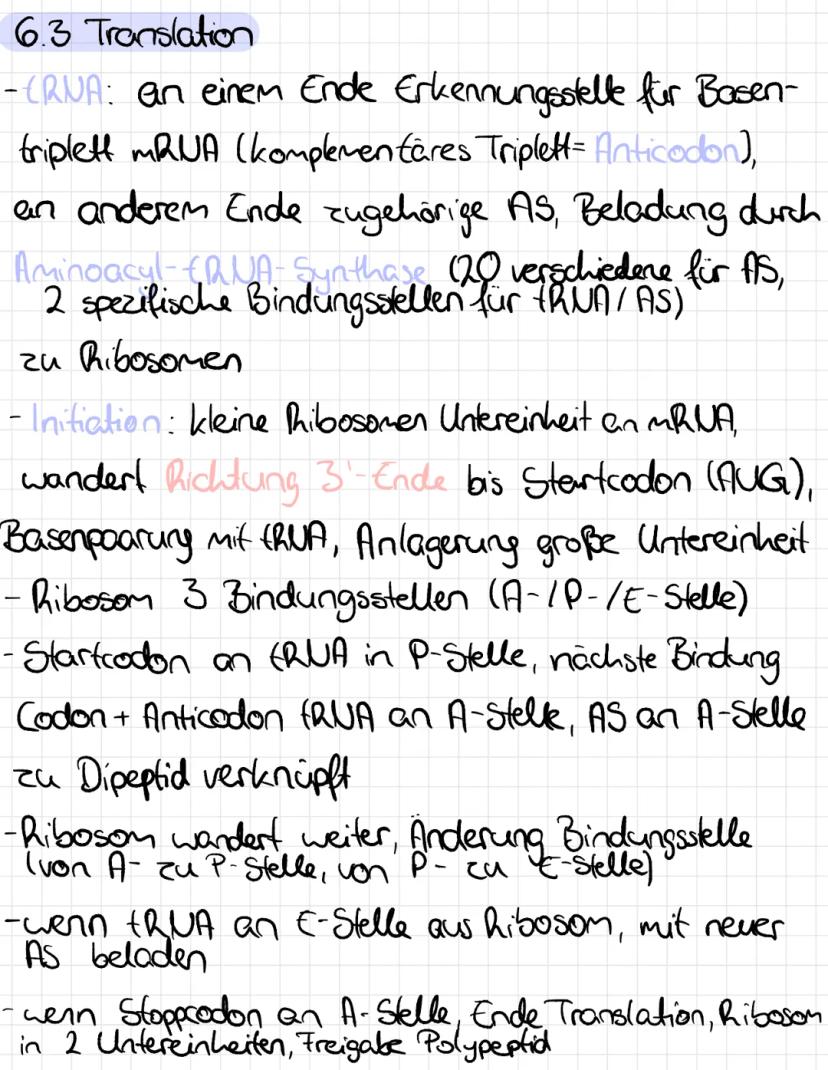 6.3 Translation
- tRNA: an einem Ende Erkennungsstelle für Basen-
triplett mRNA (komplementäres Triplett= Anticodon),
an anderem Ende zugehörige AS, Beladung durch
Aminoacyl-tRNA-Synthase (20 verschiedene für AS,
2 spezifische Bindungsstellen für tRNA/AS)
zu Ribosomen
- Initiation: kleine Ribosomen Untereinheit an mRNA,
wandert Richtung 3'-Ende bis Startcodon (AUG),
Basenpaarung mit tRNA, Anlagerung große Untereinheit
- Ribosom 3 Bindungsstellen (A-/P-/E-Stelle)
- Startcodon an tRNA in P-Stelle, nächste Bindung
Codon + Anticodon tRNA an A-Stelle, AS an A-Stelle
zu Dipeptid verknüpft
- Ribosom wandert weiter, Änderung Bindungsstelle
(von A- zu P-Stelle, von P- zu E-Stelle)
- wenn tRNA an E-Stelle aus Ribosom, mit neuer
AS beladen
- wenn Stoppcodon an A-Stelle, Ende Translation, Ribosom
in 2 Untereinheiten, Freigabe Polypeptid